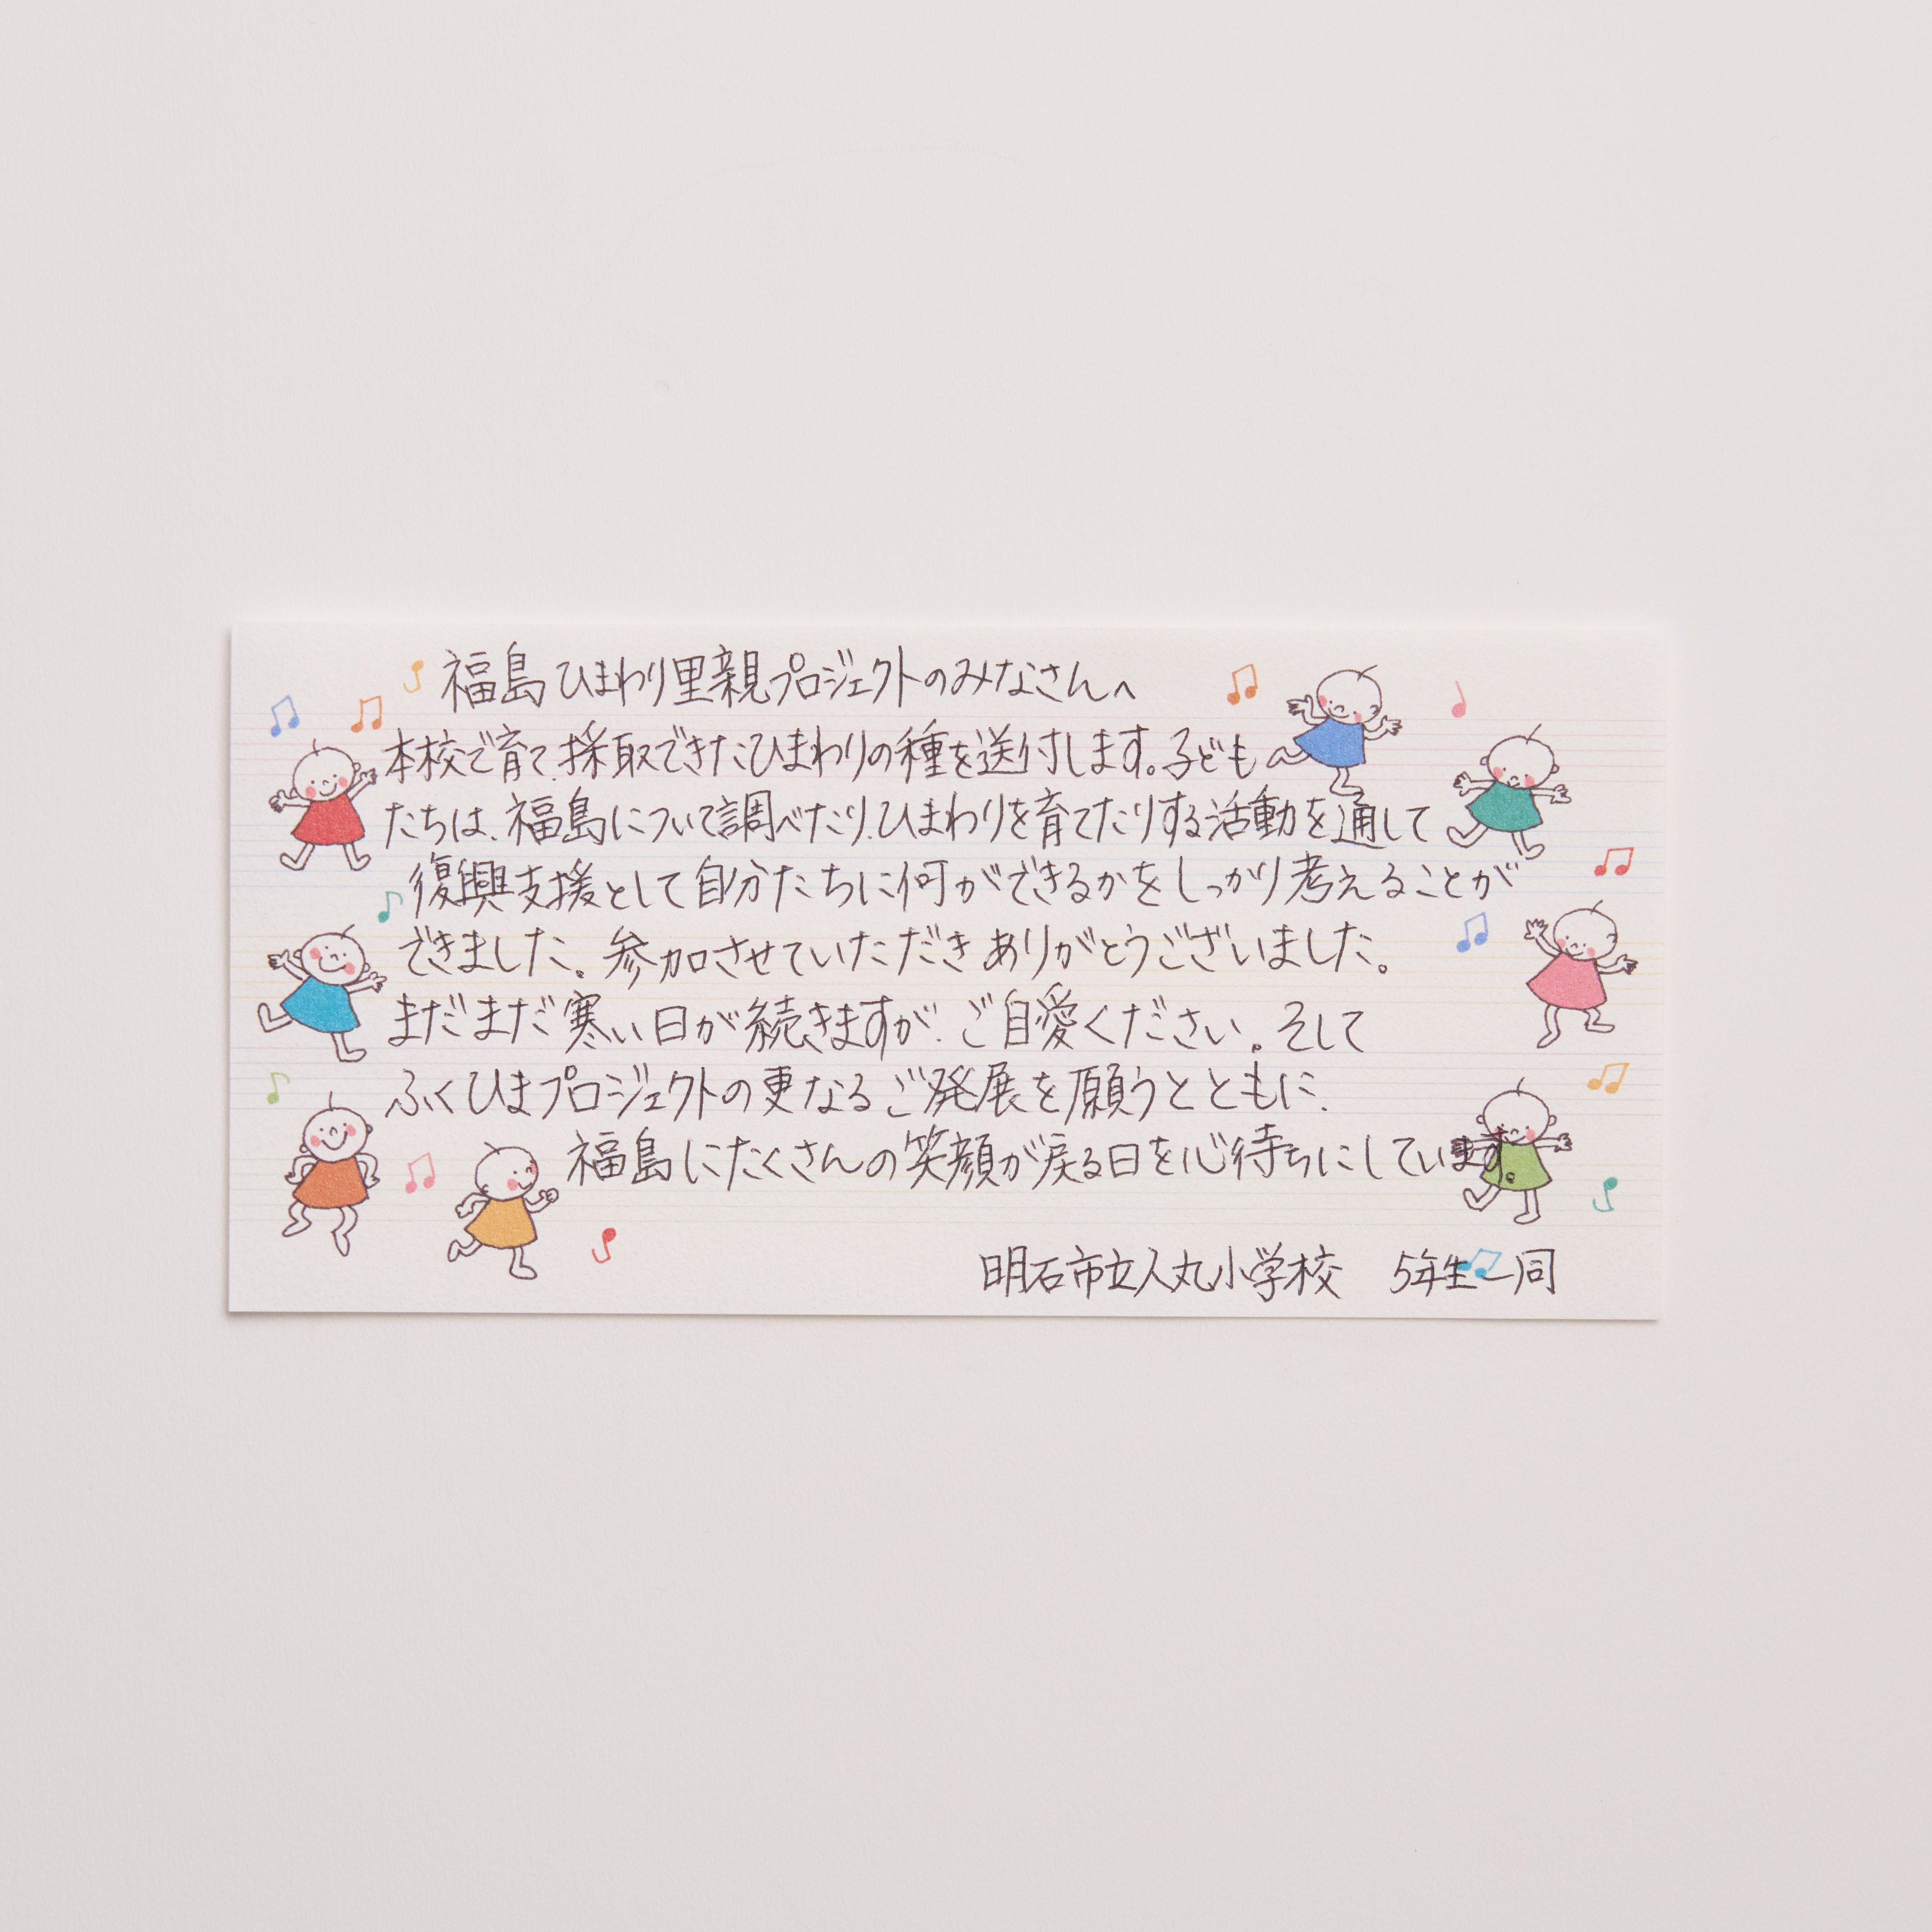 福島ひまわり里親プロジェクトのみなさんへ
本校で育て、採取できたひまわりの種を送付します。子ども
たちは、福島について調べたり、ひまわりを育てたりする活動を通して
復興支援として自分たちに何ができるかをしっかり考えることが
できました。参加させていただきありがとうございました。
まだまだ寒い日が続きますが、ご自愛ください。そして
ふくひまプロジェクトの更なるご発展を願うとともに、
福島にたくさんの笑顔が戻る日を心待ちにしています。
明石市立人丸小学校 5年生一同